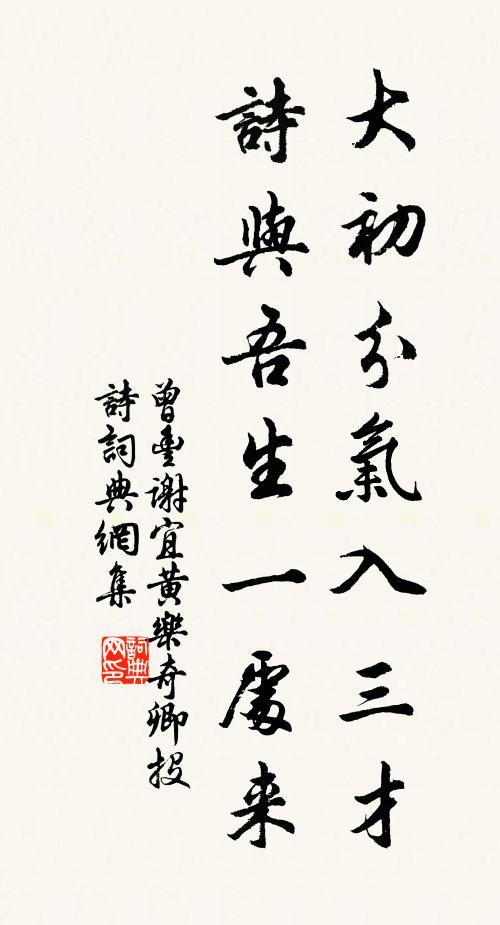 大初分氣入三才
詩與吾生一處来
曾豐謝宜黃樂奇卿投
詩詞典網集
詞典
网印